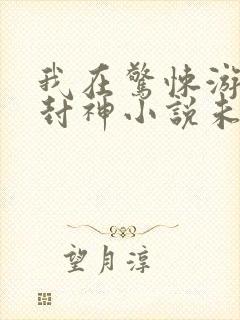 我在驚悚游
封神小說未
望月淳